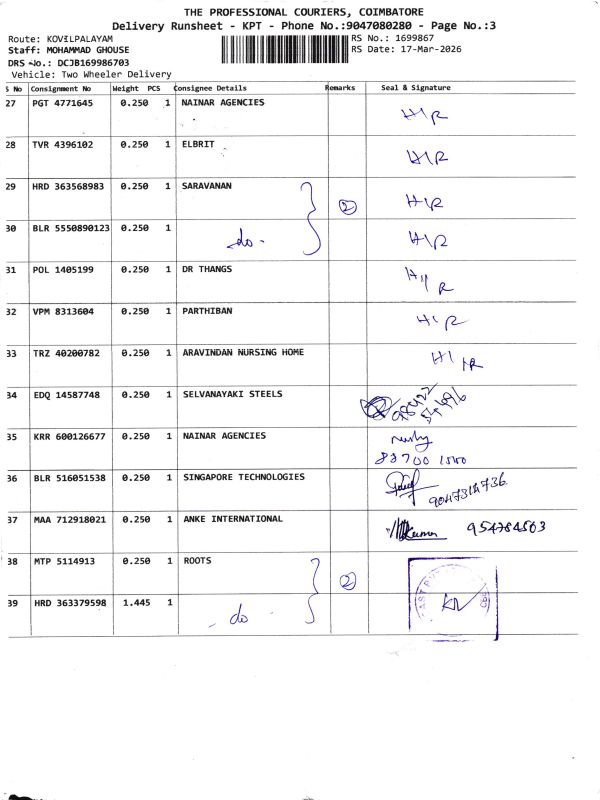 THE PROFESSIONAL COURIERS, COIMBATORE
Delivery Runsheet - KPT - Phone No.:9047080280 - Page No.:3
Route: KOVILPALAYAM RS No.: 1699867
Staff: MOHAMMAD GHOUSE RS Date: 17-Mar-2026
DRS No.: DCJB169986703
Vehicle: Two Wheeler Delivery
S No Consignment No Weight PCS Consignee Details Remarks Seal & Signature
27 PGT 4771645 0.250 1 NAINAR AGENCIES H/R
28 TVR 4396102 0.250 1 ELBRIT H/R
29 HRD 363568983 0.250 1 SARAVANAN 2 H/R
30 BLR 5550890123 0.250 1 do - H/R
31 POL 1405199 0.250 1 DR THANGS H/R
32 VPM 8313604 0.250 1 PARTHIBAN H/R
33 TRZ 40200782 0.250 1 ARAVINDAN NURSING HOME H/R
34 EDQ 14587748 0.250 1 SELVANAYAKI STEELS
35 KRR 600126677 0.250 1 NAINAR AGENCIES
36 BLR 516051538 0.250 1 SINGAPORE TECHNOLOGIES
37 MAA 712918021 0.250 1 ANKE INTERNATIONAL
38 MTP 5114913 0.250 1 ROOTS 2
39 HRD 363379598 1.445 1 - do -